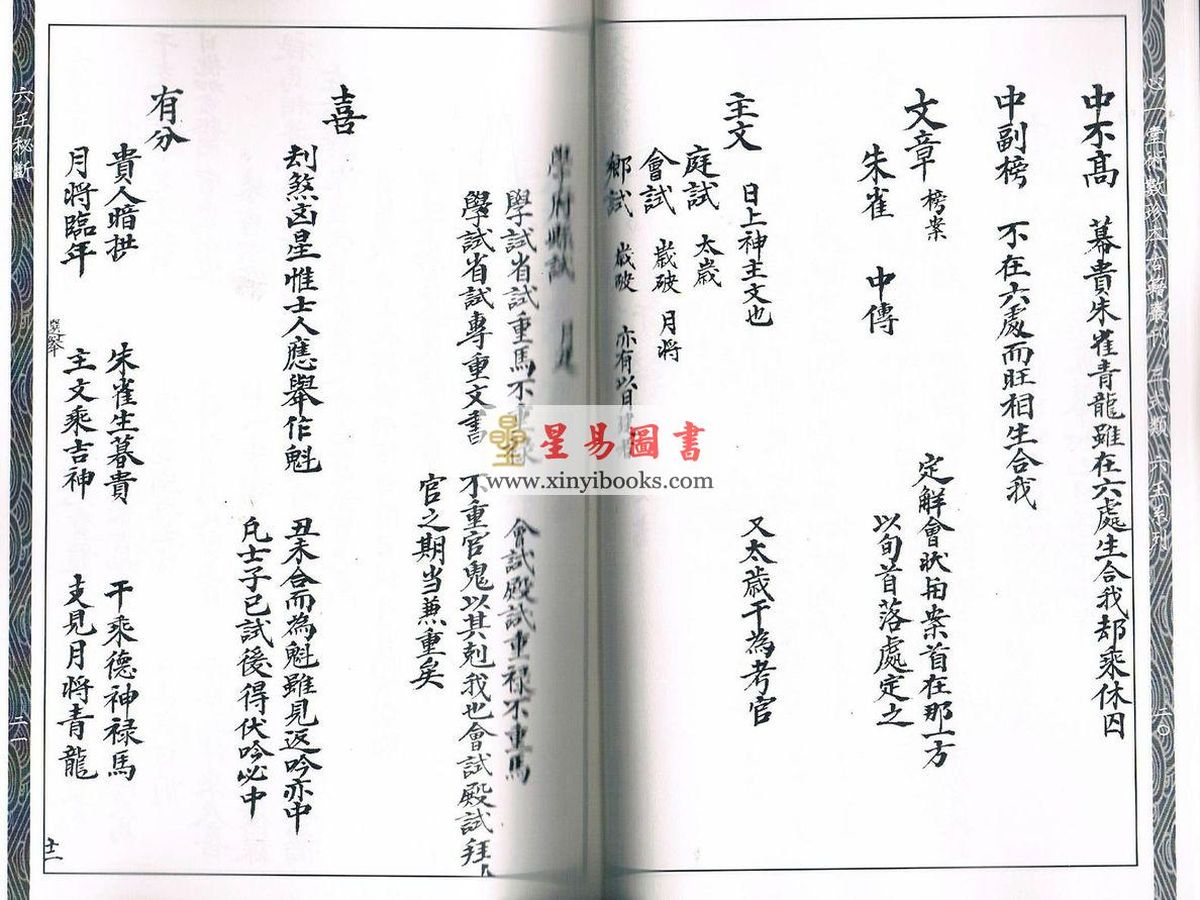 心一堂術數珍本古籍叢刊 三式類 六壬系列
二〇
中不高 幕貴朱雀青龍雖在六處生合我却乘休囚
中副榜 不在六處而旺相生合我
文章 榜案 定解會狀用案首在那一方
朱雀 中傳 以旬首落處定之
主文 日上神主文也 又太歲干為考官
庭試 太歲
會試 歲破 月將
鄉試 歲破 亦有以月建者
學府縣試 月建
學試省試重馬不重祿 會試殿試重禄不重馬
學試省試專重文書 不重官鬼以其剋我也會試殿試拜
官之期当兼重矣
喜 刦煞凶星惟士人應舉作魁 丑未合而為魁雖見返吟亦中
凡士子已試後得伏吟必中
有分 貴人暗拱 朱雀生暮貴 干乘德神禄馬
月將臨年 主文乘吉神 支見月將青龍
選舉
十一
六壬秘斷
二一
星易圖書
www.xinyibooks.com